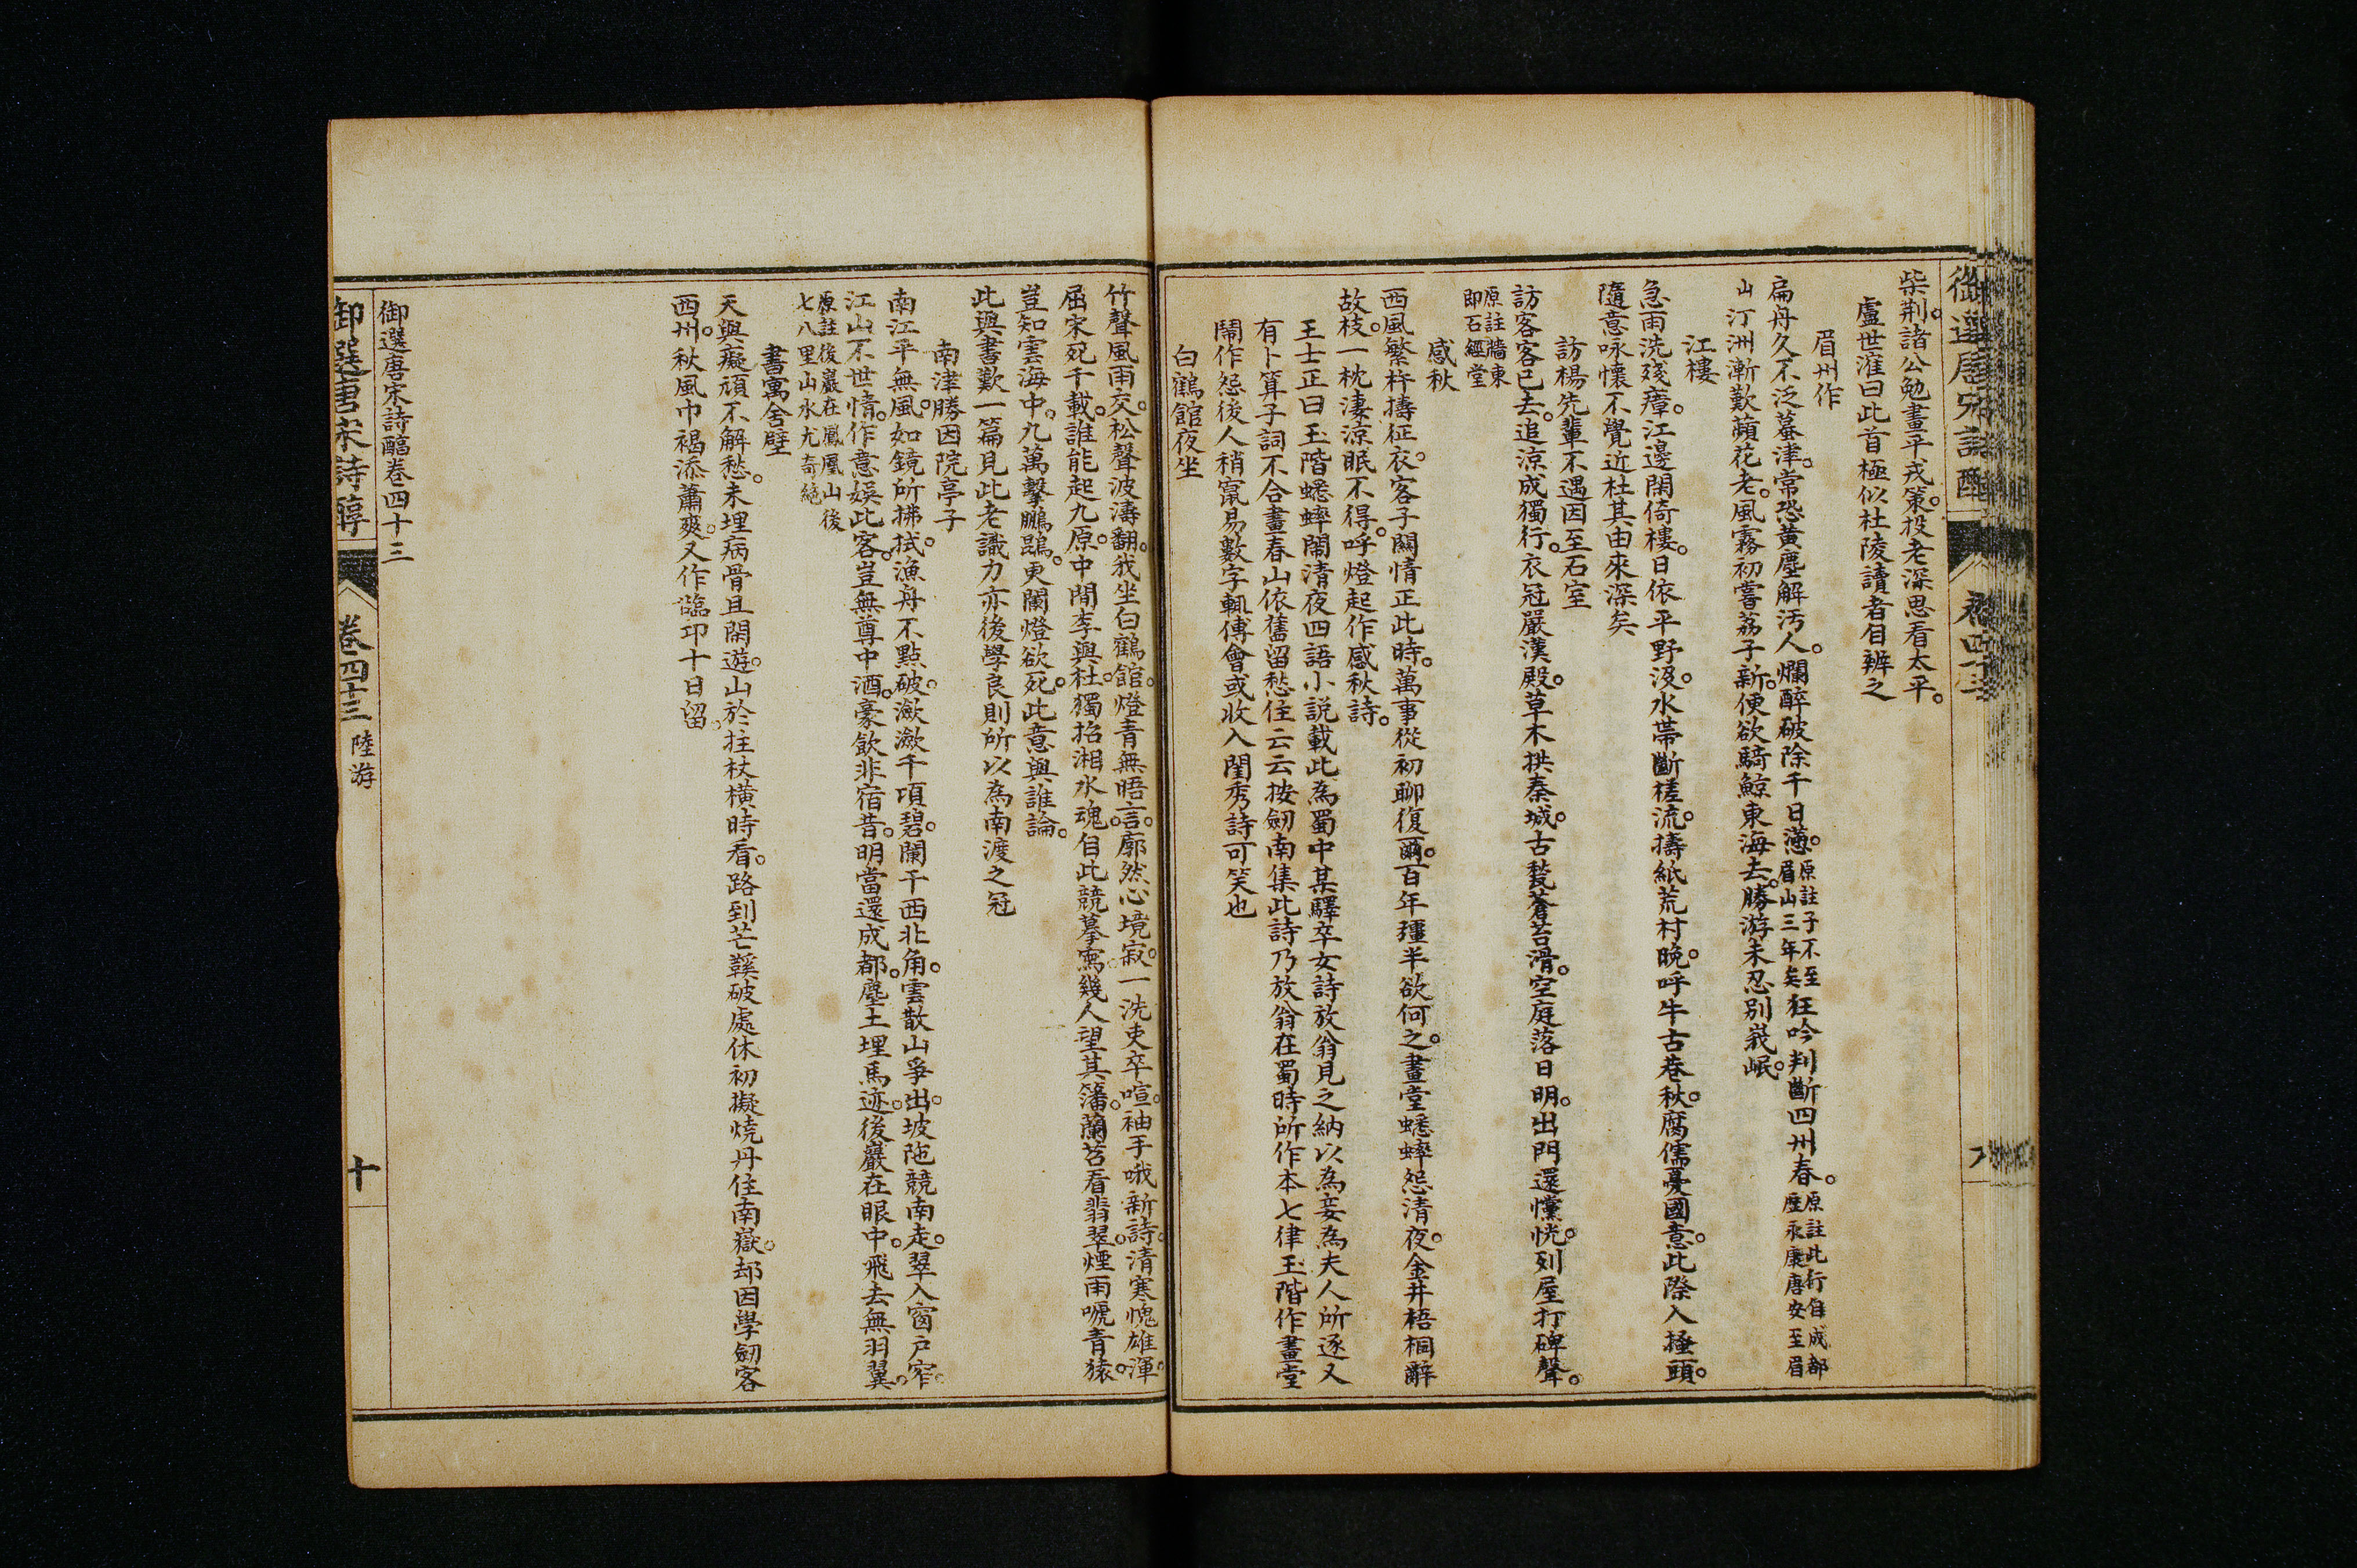 御選唐宋詩醇
卷四十三
柴荆。諸公勉畫平戎策。投老深思看太平。
盧世㴶曰此首極似杜陵讀者自辨之
眉州作
扁舟久不泛蟇津。常恐黄塵解汚人。爛醉破除千日懣。原註予不至眉山三年矣狂吟判斷四州春。原註此行自成都歴永康唐安至眉
山汀洲漸歎蘋花老。風霧初嘗荔子新。便欲騎鯨東海去。勝游未忍别峩岷。
江樓
急雨洗殘瘴。江邊閑倚樓。日依平野没。水帶斷槎流。擣紙荒村晩。呼牛古巷秋。腐儒憂國意。此際入搔頭。
隨意咏懷不覺近杜其由來深矣
訪楊先輩不遇因至石室
訪客客已去。追涼成獨行。衣冠嚴漢殿。草木拱秦城。古甃蒼苔滑。空庭落日明。出門還懽恍。列屋打碑聲。
原註牆東
即石經堂
感秋
西風繁杵擣征衣。客子關情正此時。萬事從初聊復爾。百年彊半欲何之。畫堂蟋蟀怨清夜。金井梧桐辭
故枝。一枕淒涼眠不得。呼燈起作感秋詩。
王士正曰玉階蟋蟀鬧清夜四語小説載此為蜀中某驛卒女詩放翁見之納以為妾為夫人所逐又
有卜筭子詞不合畫春山依舊留愁住云云按劒南集此詩乃放翁在蜀時所作本七律玉階作畫堂
鬧作怨後人稍竄易數字輒傅會或收入閨秀詩可笑也
白鶴館夜坐
竹聲風雨交。松聲波濤翻。我坐白鶴館。燈青無晤言。廓然心境寂。一洗吏卒喧。袖手哦新詩。清寒愧雄渾。
屈宋死千載。誰能起九原。中間李與杜。獨招湘水魂。自此競摹寫。幾人望其籓。蘭苕看翡翠。煙雨嗁青猿。
豈知雲海中。九萬擊鵬鵾。更闌燈欲死。此意與誰論。
此與書歎一篇見此老識力亦後學良則所以為南渡之冠
南津勝因院亭子
南江平無風。如鏡所拂拭。漁舟不點破。瀲瀲千項碧。闌干西北角。雲散山爭出。坡陁競南走。翠入窗户窄。
江山不世情。作意娱此客。豈無尊中酒。豪飲非宿昔。明當還成都。塵土埋馬迹。後巖在眼中。飛去無羽翼。
原註後巖在鳳凰山後
七八里山水尤奇絶
書寓舍壁
天與癡頑不解愁。未埋病骨且閑遊。山於拄杖橫時看。路到芒鞵破處休。初擬燒丹住南嶽。却因學劒客
西州。秋風巾褐添蕭爽。又作臨邛十日留。
御選唐宋詩醇卷四十三
御選唐宋詩醇
卷四十三
陸游
十